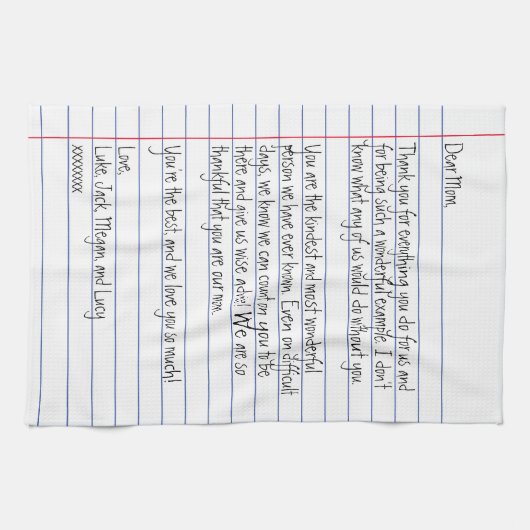 Dear Mom,
Thank you for everything you do for us and
for being such a wonderful example. I don't
know what any of us would do without you.
You are the kindest and most wonderful
person we have ever known. Even on difficult
days, we know we can count on you to be
there and give us wise advice! We are so
thankful that you are our mom.
You're the best, and we love you so much!
Love,
Luke, Jack, Megan, and Lucy
xxxxxxxxx